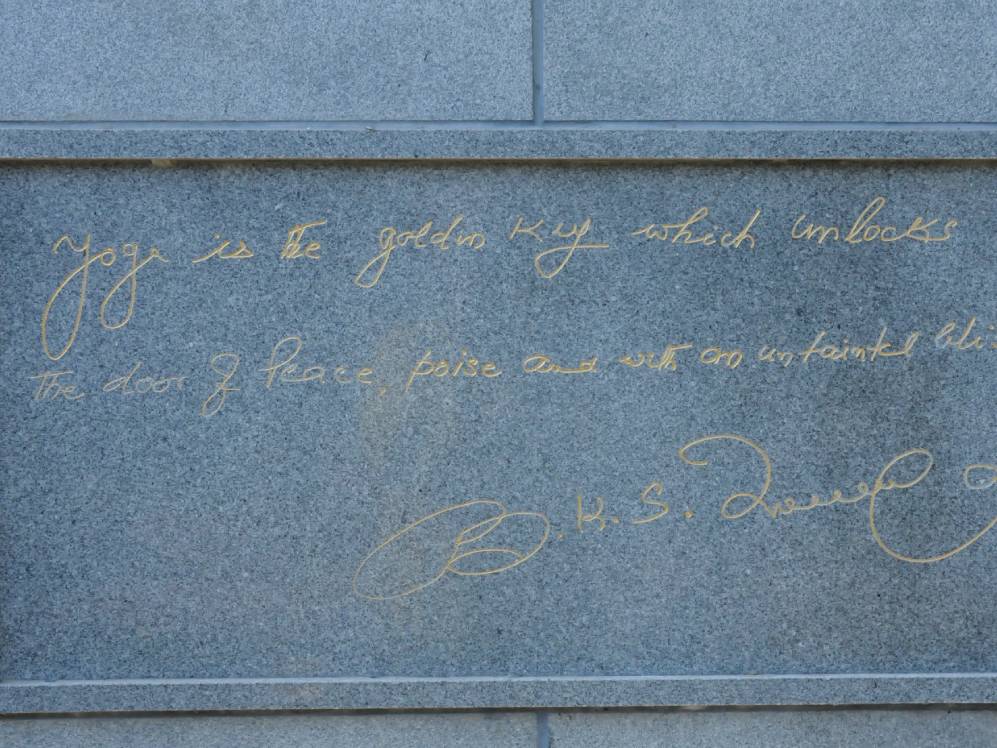 Yoga is the golden Key which unlocks
The door of Peace, poise and with an untainted bli
B.K.S.